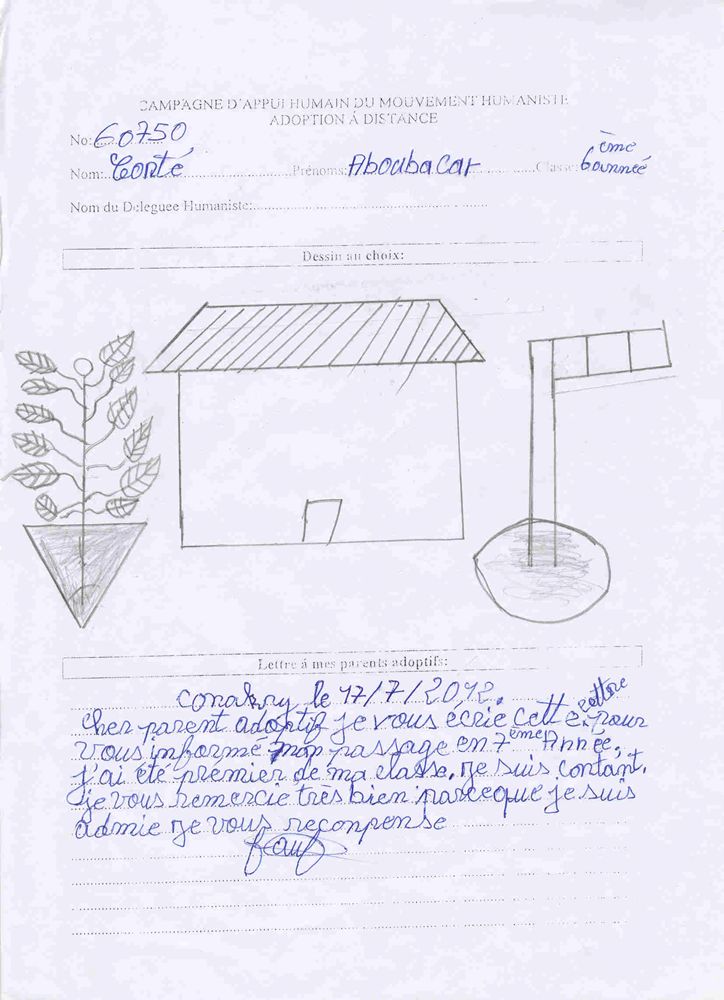 CAMPAGNE D'APPUI HUMAIN DU MOUVEMENT HUMANISTE
ADOPTION Á DISTANCE
No: 60750
Nom: Conté Prénoms: Aboubacar Classe: 6ème année
Nom du Deleguee Humaniste:
Dessin au choix:
Lettre á mes parents adoptifs:
Conakry le 17/7/2012.
Cher parent adoptif je vous écrie cette lettre pour
vous informé mon passage en 7ème Année.
j'ai été premier de ma classe. je suis contant.
je vous remercie très bien parceque je suis
admie je vous reconpense